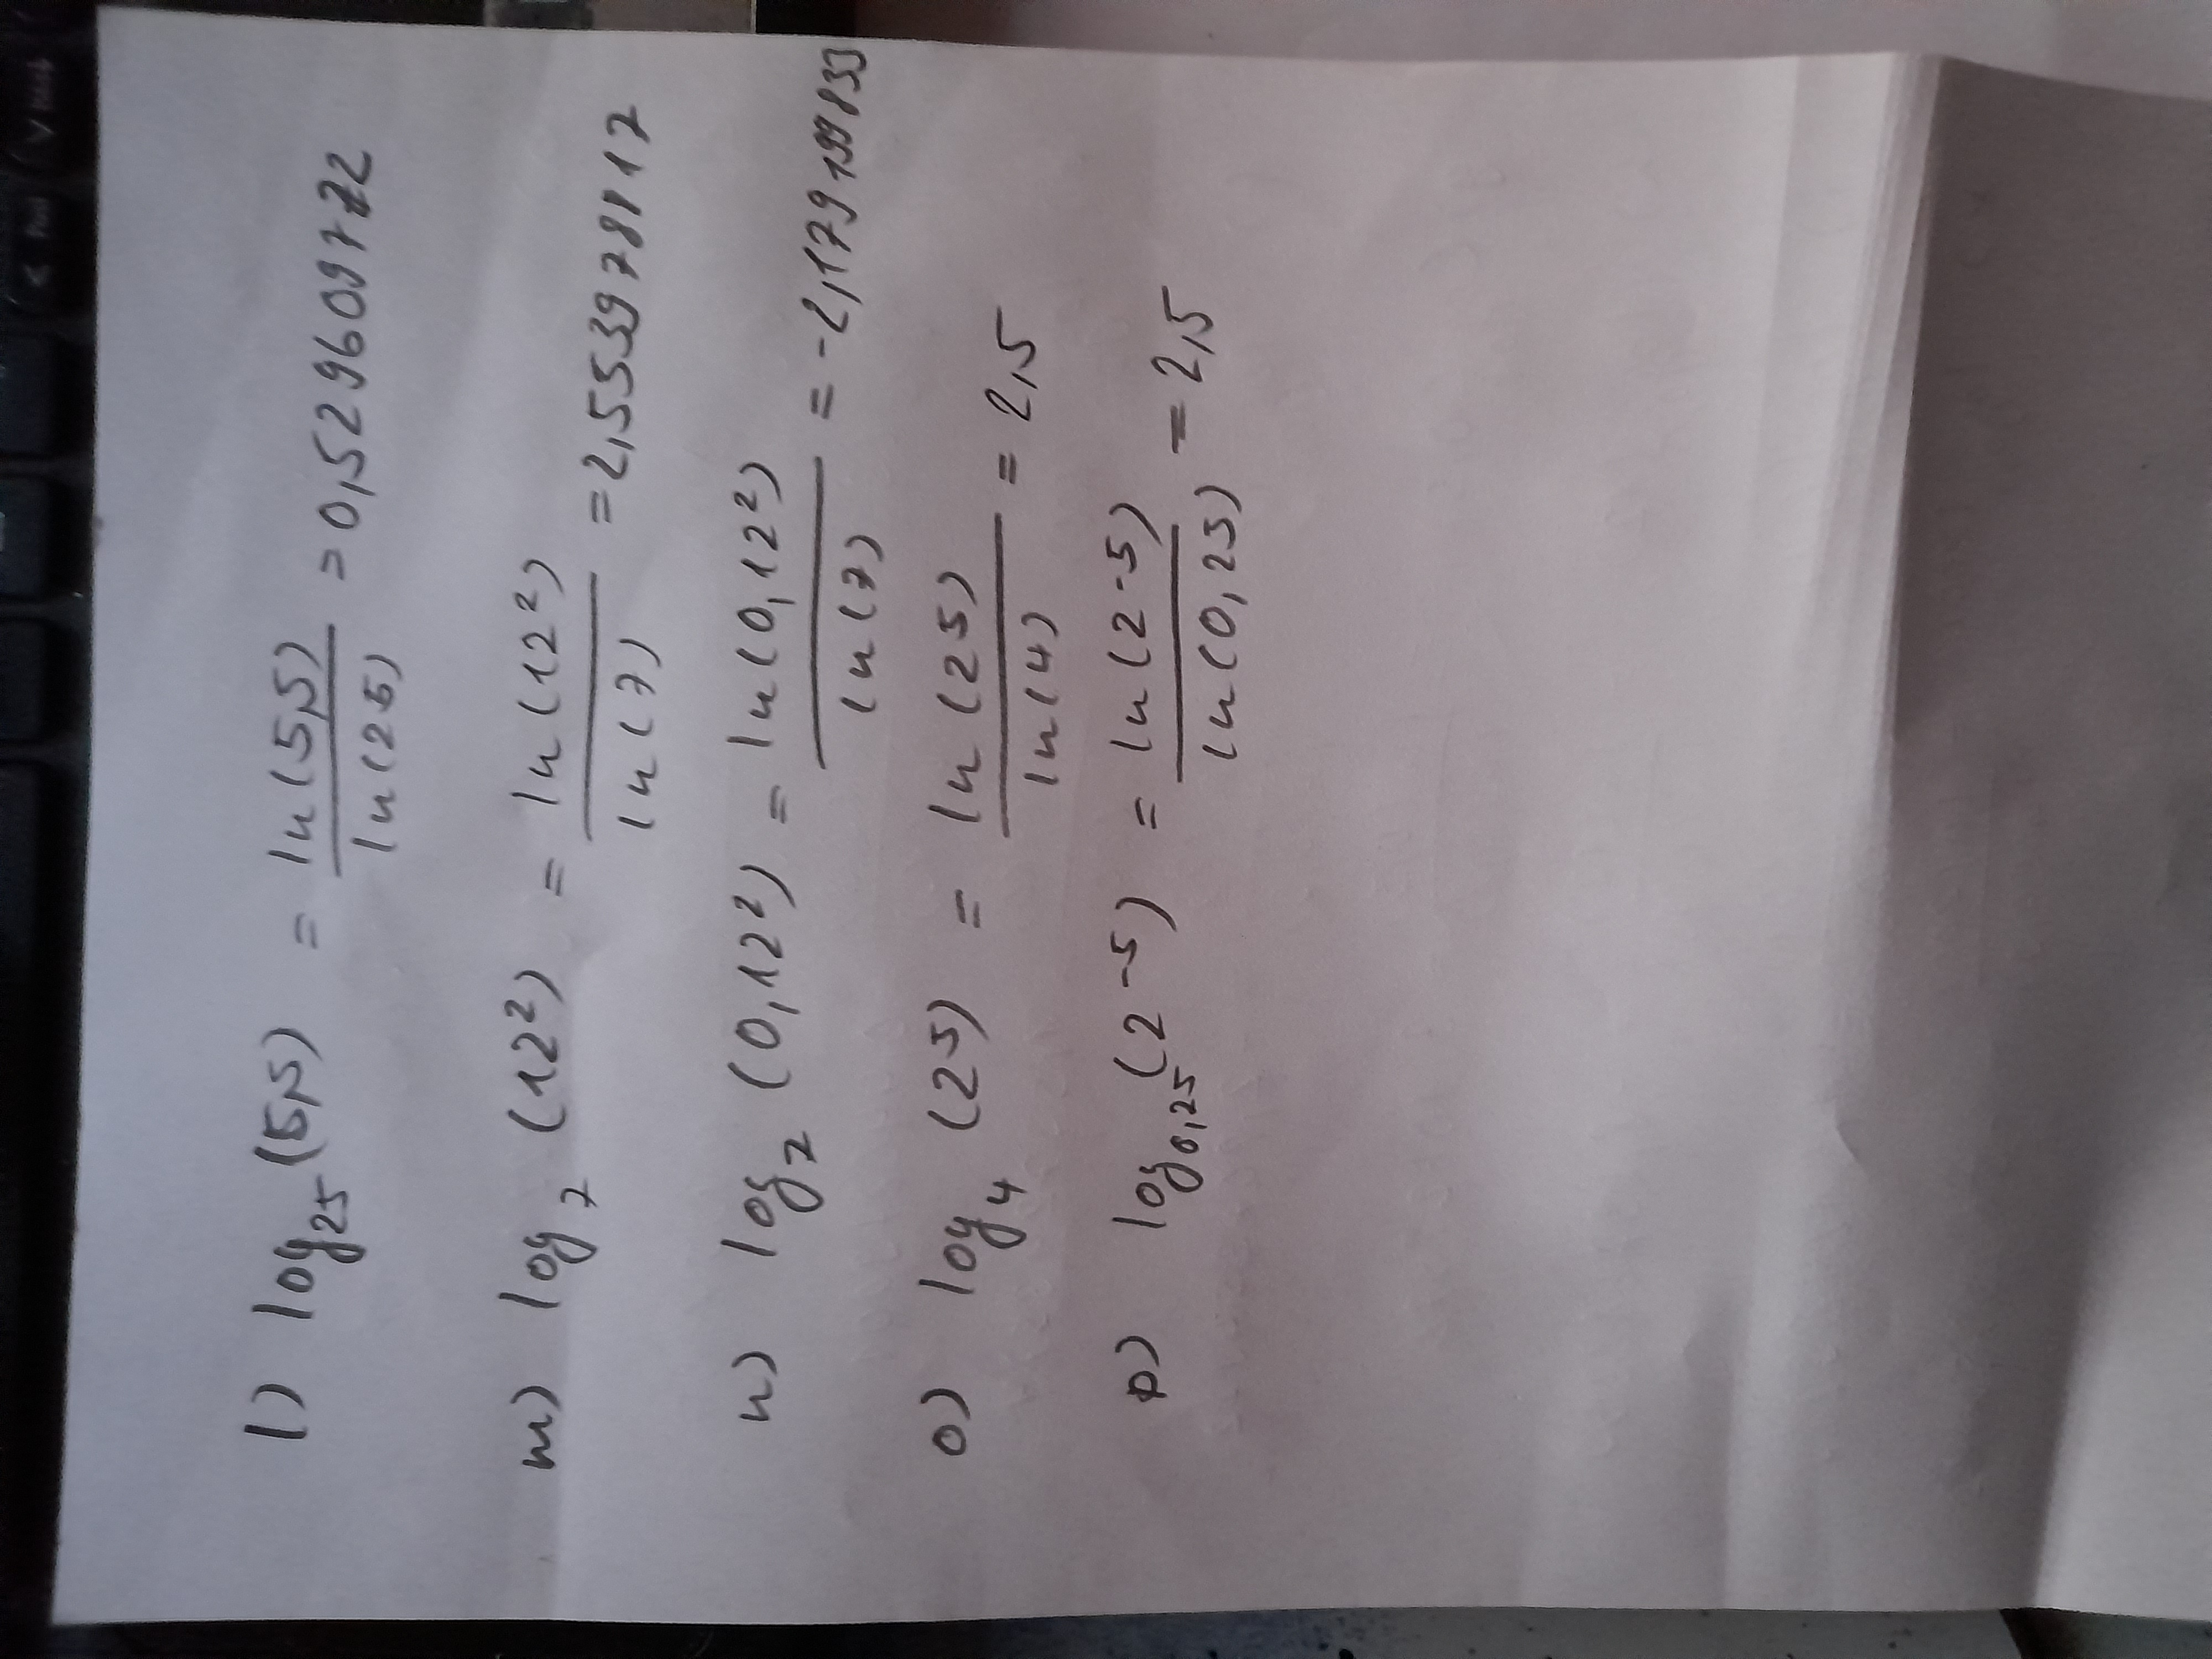 l) log₂₅(5,5) = ln(5,5) / ln(25) = 0,529609772
m) log₇ (12²) = ln(12²) / ln(7) = 2,553978117
n) log₇ (0,12²) = ln(0,12²) / ln(7) = -2,179199833
o) log₄ (25) = ln(25) / ln(4) = 2,5
p) log₀,₂₅(2-5) = ln(2-5) / ln(0,25) = 2,5